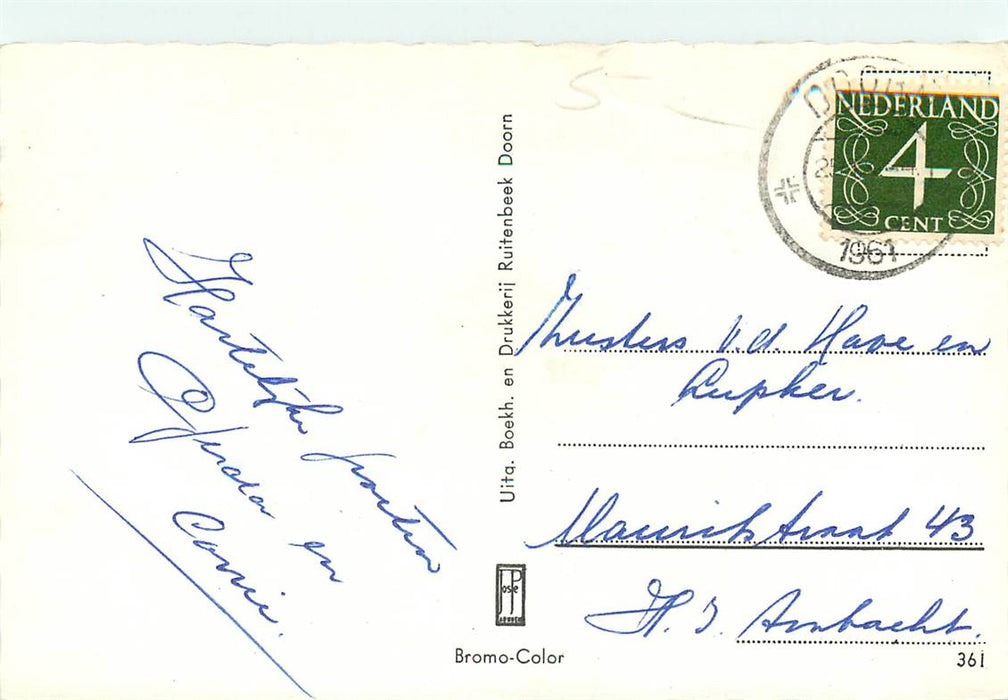 Hartelijke groeten
Gerda en
Corrie.
Uitg. Boekh. en Drukkerij Ruitenbeek Doorn
DOORN
1961
NEDERLAND
4
CENT
Zusters v.d. Have en
Lupker.
Mauritsstraat 43
H. I. Ambacht.
JosPé
ARNHEM
Bromo-Color
361